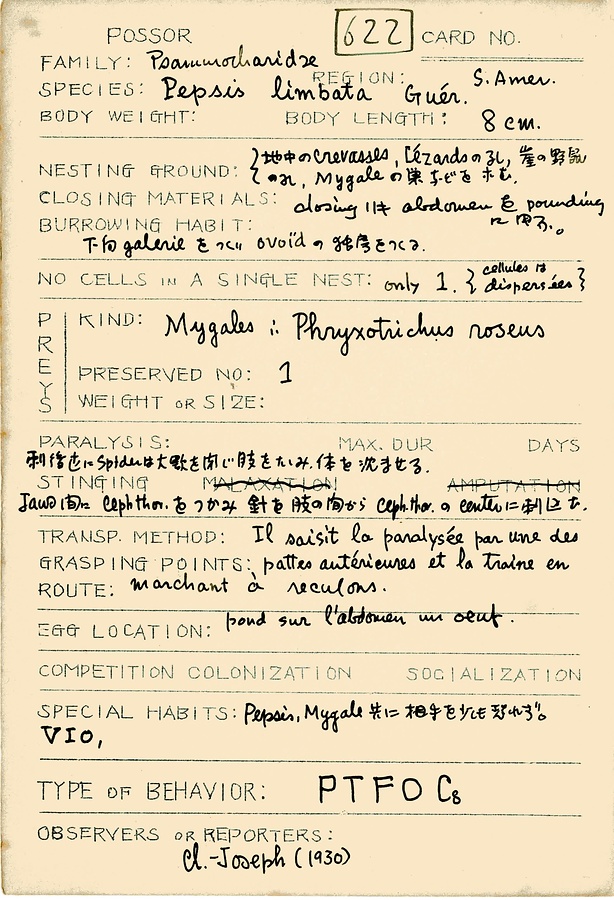 POSSOR 622 CARD NO.
FAMILY: Psammocharidæ
REGION: S. Amer.
SPECIES: Pepsis limbata Guér.
BODY WEIGHT: BODY LENGTH: 8 cm.
NESTING GROUND: 地中のcrevasses, Lézardsの孔, 崖の野鼠
の孔, Mygale の巣などを求む.
CLOSING MATERIALS: closing は abdomen を pounding
BURROWING HABIT: に用る。
下向 galerie をつくり ovoïd の独房をつくる.
NO CELLS IN A SINGLE NEST: only 1. { cellules は dispersées }
PREYS
KIND: Mygales : Phryxotrichus roseus
PRESERVED NO: 1
WEIGHT OR SIZE:
PARALYSIS: MAX. DUR DAYS
刺後直にSpiderは大歇を閉じ肢をたゝみ, 体を沈ませる.
STINGING MALAXATION AMPUTATION
Jaw間に Cephthor. をつかみ 針を肢の間から Cephthor. の center に刺込む.
TRANSP. METHOD: Il saisit la paralysée par une des
GRASPING POINTS: pattes antérieures et la traîne en
ROUTE: marchant à reculons.
EGG LOCATION: pond sur l'abdomen un oeuf.
COMPETITION COLONIZATION SOCIALIZATION
SPECIAL HABITS: Pepsis, Mygale 共に 相手を少しも恐れず。
VIO,
TYPE OF BEHAVIOR: PTFO C8
OBSERVERS OR REPORTERS:
Cl.-Joseph (1930)